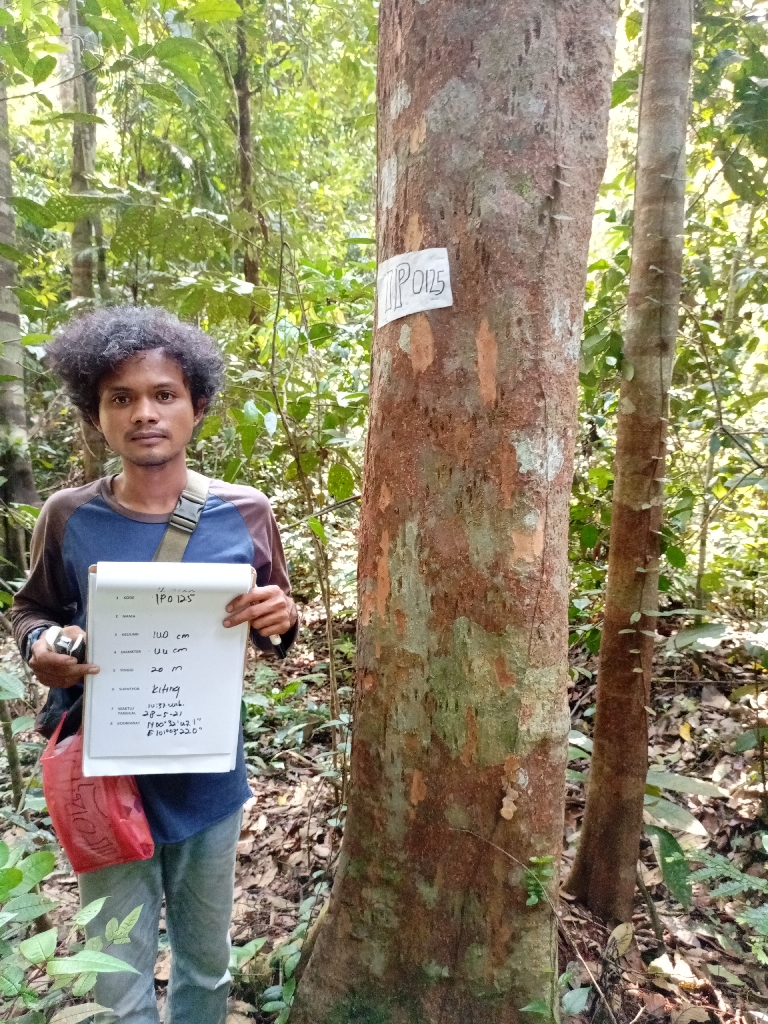 IPO125
1 KODE IPO125
2 NAMA
3 KELILING 140 cm
4 DIAMETER 44 cm
5 TINGGI 20 m
6 SURVEYOR Kiting
7 WAKTU
TANGGAL 28-5-21
8 KOORDINAT N00°32'47.1"
E101°03'22.0"